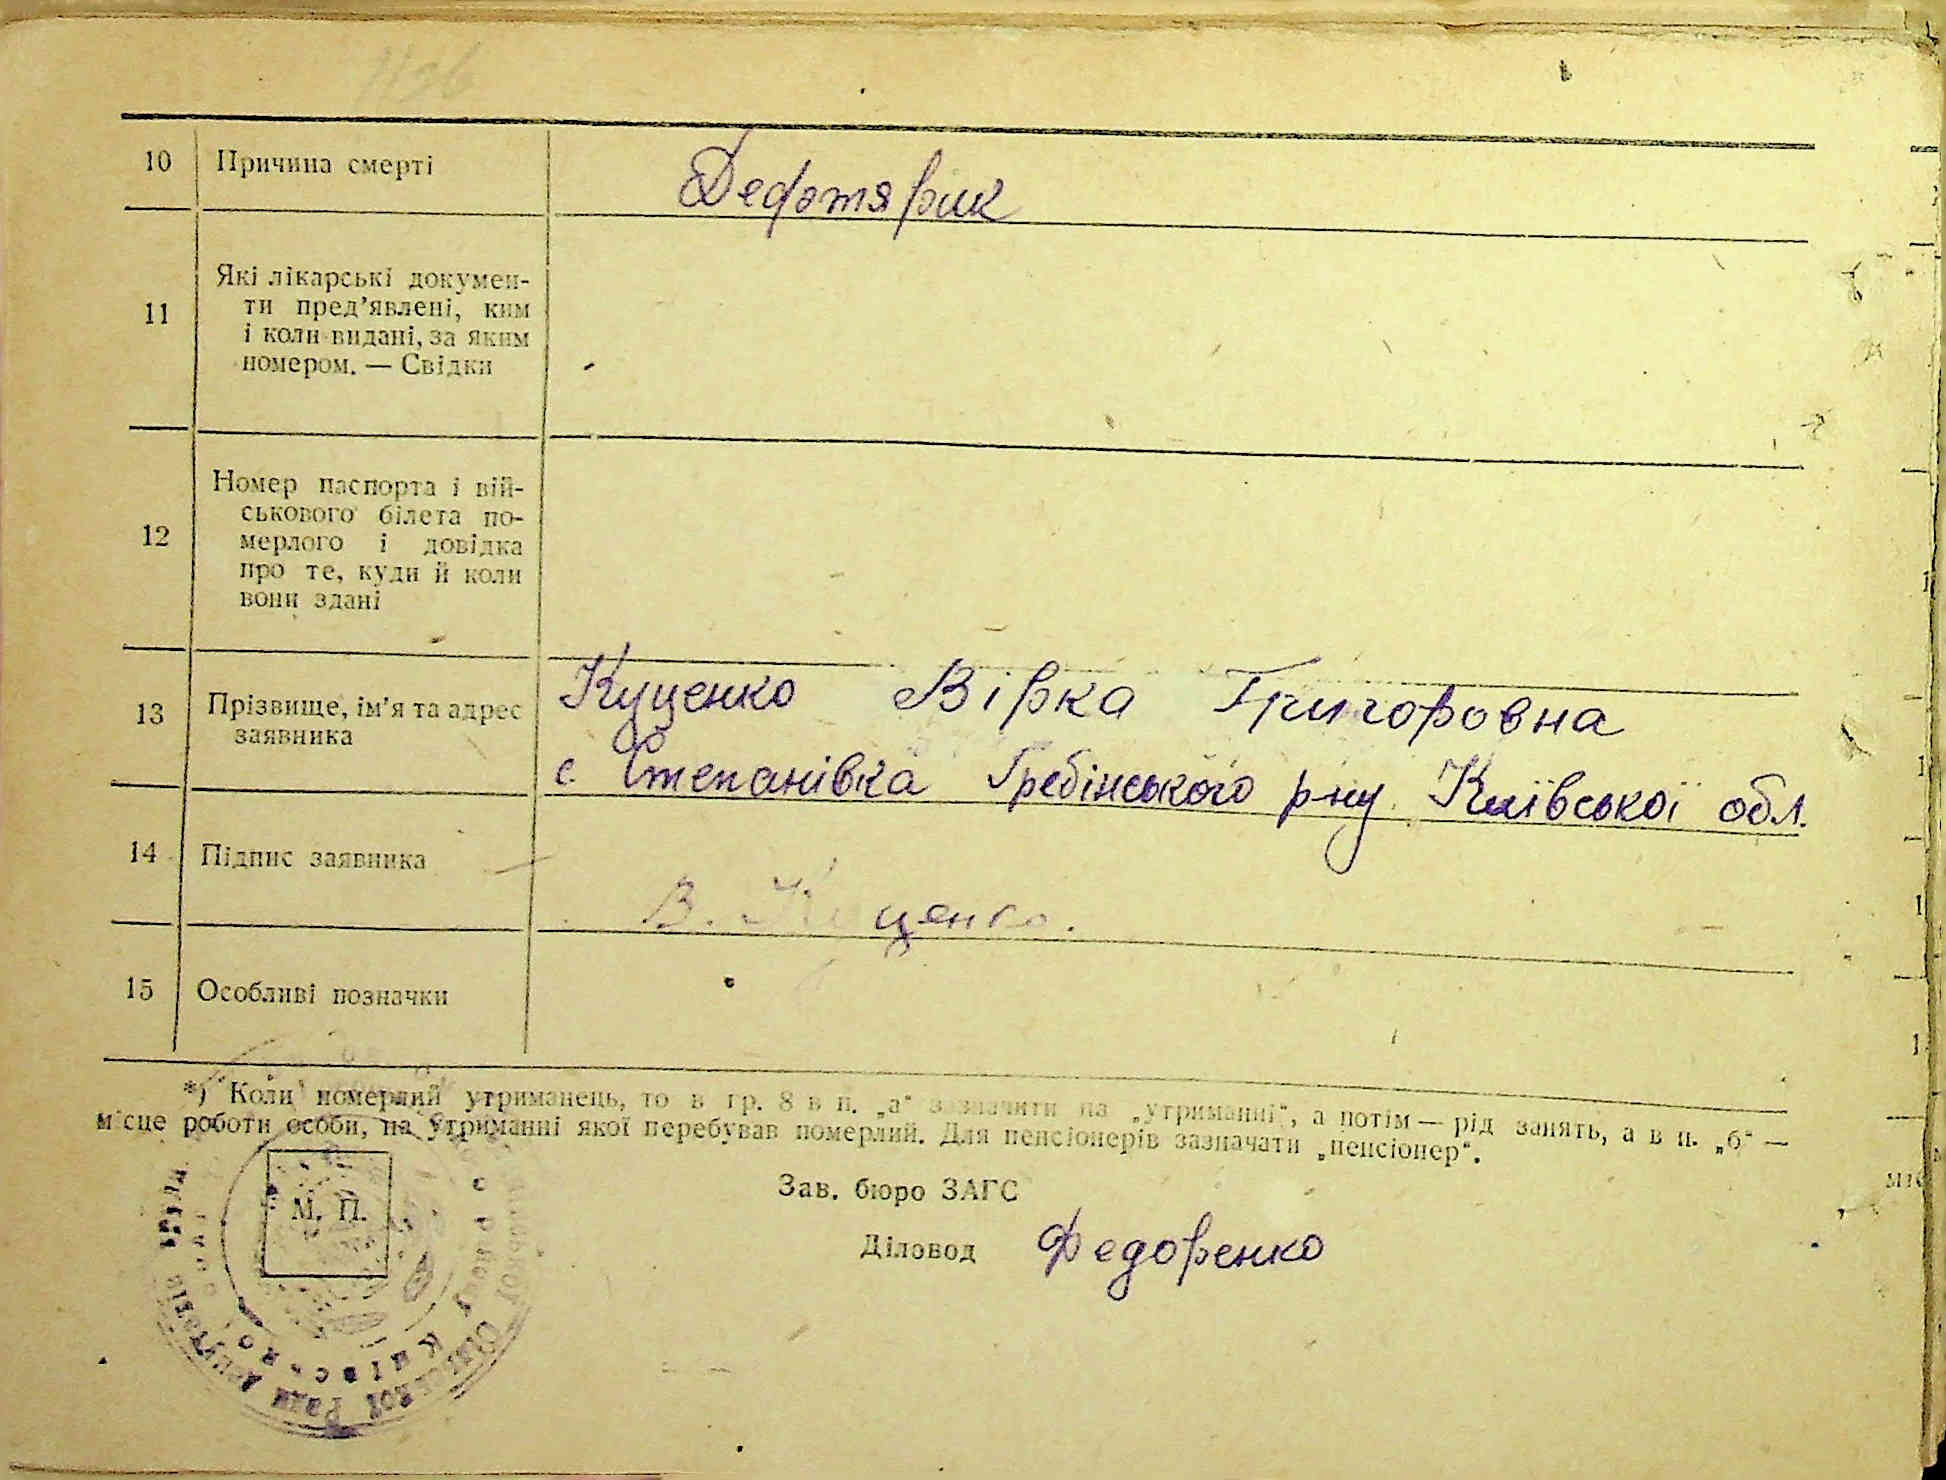 10 Причина смерті Дефотярик
11 Які лікарські докумен-
ти пред'явлені, ким
і коли видані, за яким
номером. — Свідки
12 Номер паспорта і вій-
ськового білета по-
мерлого і довідка
про те, куди й коли
вони здані
13 Прізвище, ім'я та адрес
заявника
Куценко Вірка Григоровна
с. Степанівка Гребінського р-ну Київської обл.
14 Підпис заявника
В. Куценко.
15 Особливі позначки
*) Коли померлий утриманець, то в гр. 8 в п. „а“ зазначити на „утриманні“, а потім — рід занять, а в п. „б“ —
місце роботи особи, на утриманні якої перебував померлий. Для пенсіонерів зазначати „пенсіонер“.
М. П.
Зав. бюро ЗАГС
Діловод Федоренко